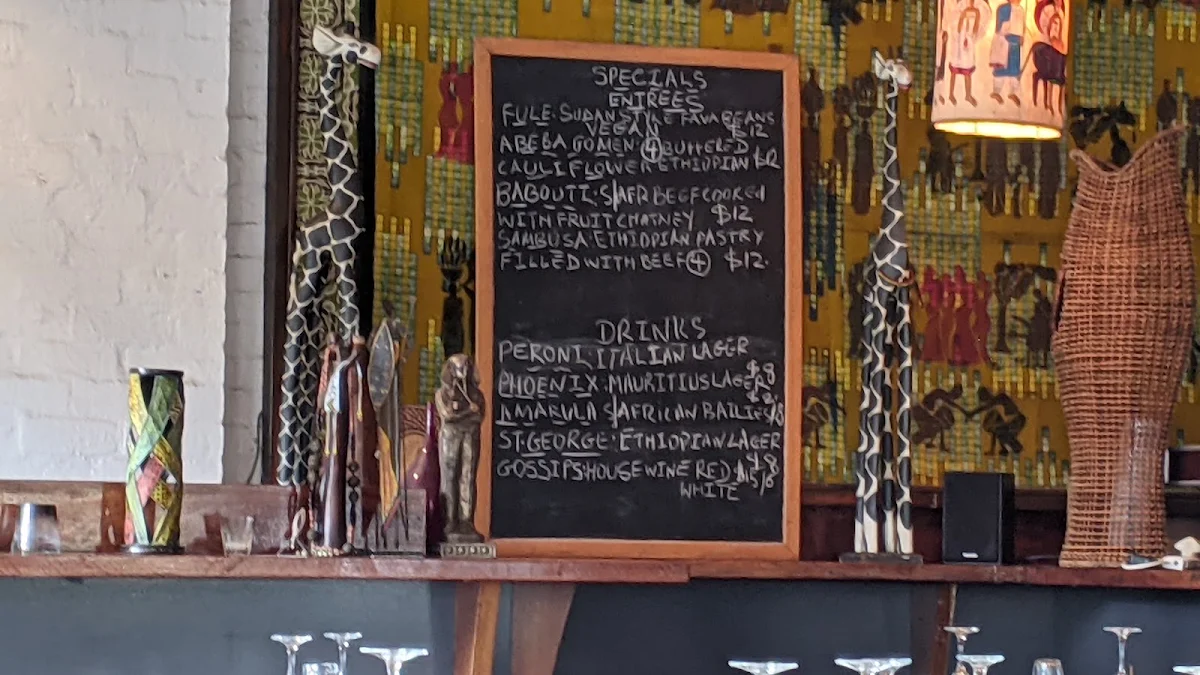 SPECIALS
ENTREES
FULE·SUDAN STYLE FAVA BEANS
VEGAN $12
ABEBA GOMEN·④BUTTERED
CAULIFLOWER·ETHIOPIAN $12
BABOUTI·S/AFR BEEF COOKED
WITH FRUIT CHATNEY $12
SAMBUSA·ETHIOPIAN PASTRY
FILLED WITH BEEF④ $12.
DRINKS
PERONI, ITALIAN LAGER
$8
PHOENIX·MAURITIUS LAGER
AMARULA S/AFRICAN BAILIES
ST·GEORGE·ETHIOPIAN LAGER
$8
GOSSIPS·HOUSE WINE RED
WHITE